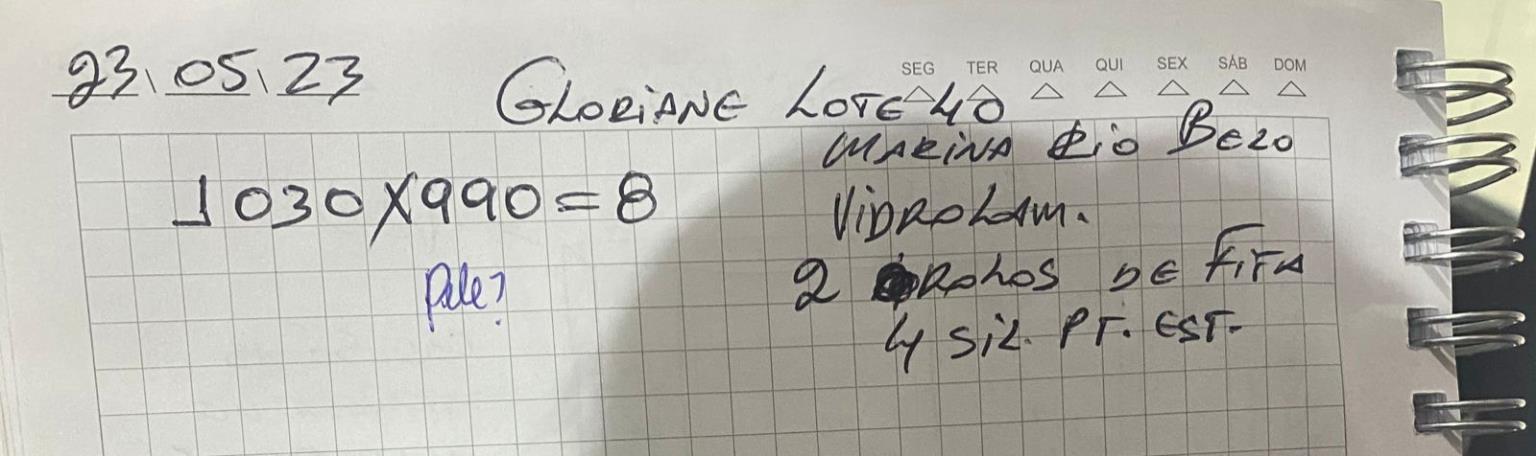 23\05\23
SEG TER QUA QUI SEX SÁB DOM
GLORIANE LOTE 40
MARINA RIO BELO
1030X990=8
VIDRO LAM.
2 ROLOS DE FITA
4 SIL. PT. EST.